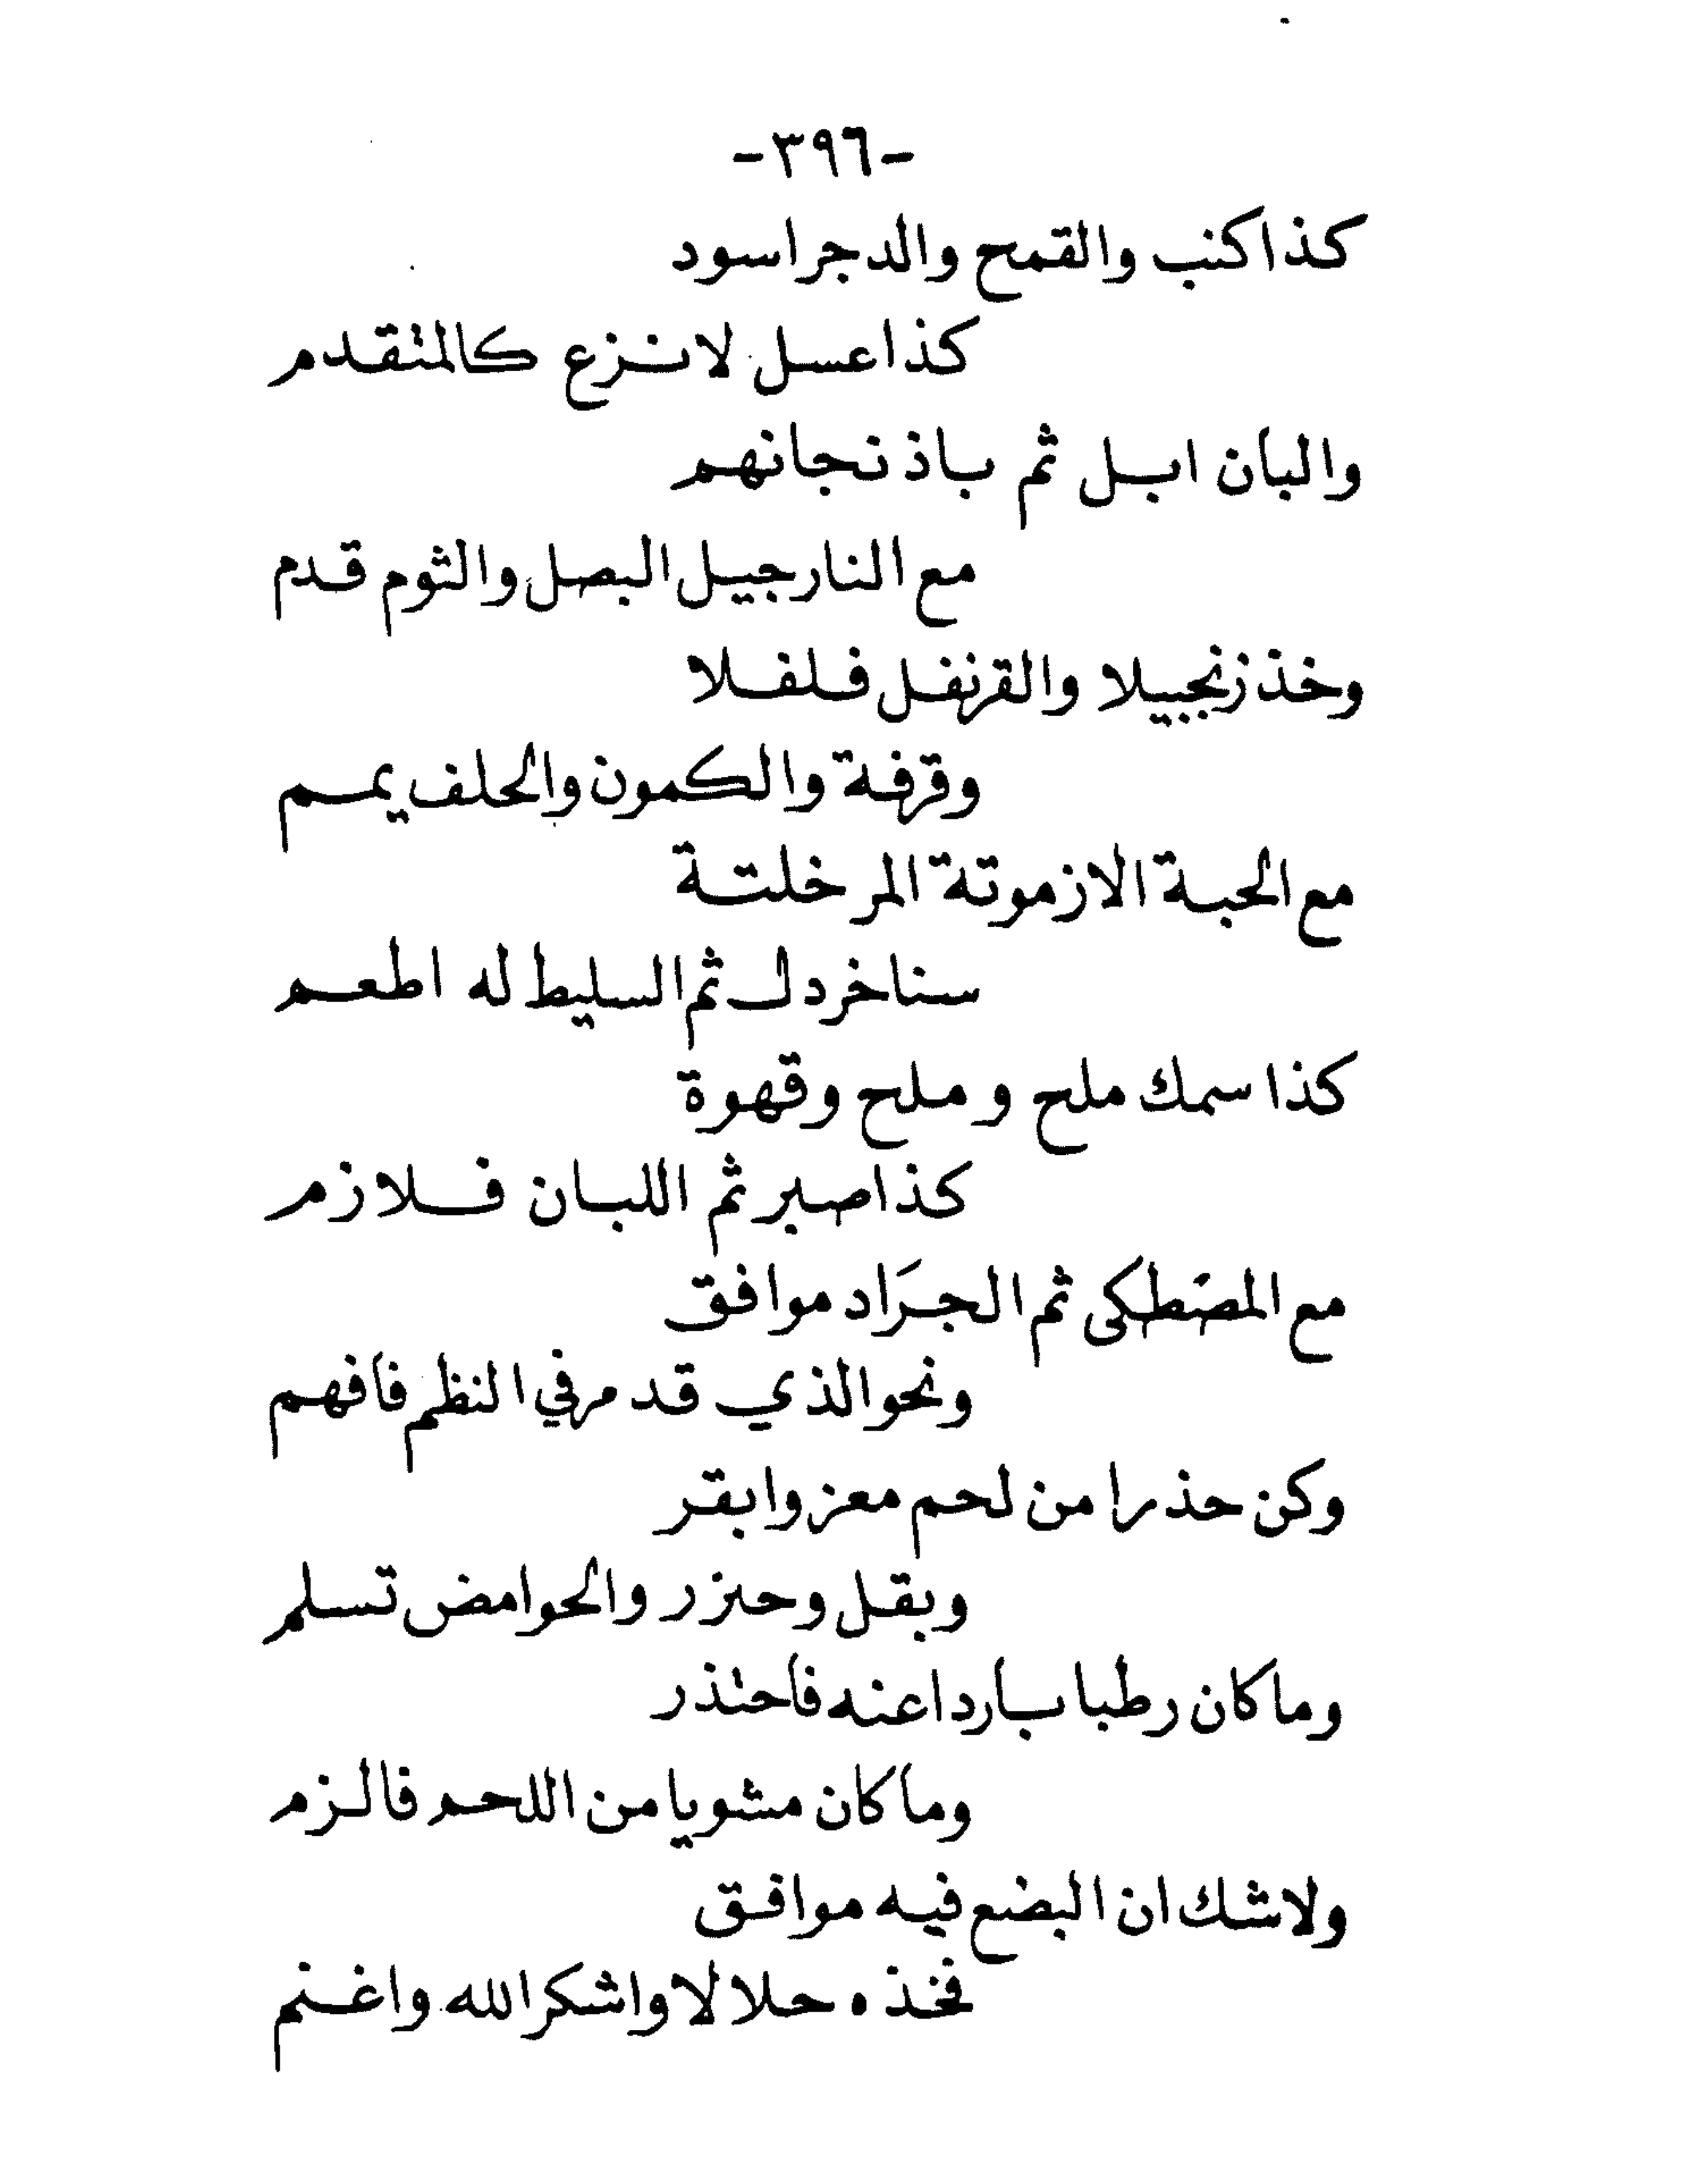 -٣٩٦-
كذا كنب والقمح والدجر اسود
كذا عسل لا نزع كالمتقدم
والبان ابل ثم باذنجانهم
مع النارجيل البصل والثوم قدم
وخذ زنجبيلا والقرنفل فلفلا
وقرفة والكمون والحلف يمم
مع الحبة الازموتة المر خلتة
سنا خردل ثم السليط له اطعم
كذا سمك ملح و ملح وقهوة
كذا صبر ثم اللبان فلازم
مع المصَطكى ثم الجرَاد موافق
ونحو الذي قد مر في النظم فافهم
وكن حذرا من لحم معز وابقر
وبقل وحنزر والحوامض تسلم
وما كان رطبا باردا عنه فاحتذر
وما كان مشويا من اللحم فالزم
ولا شك ان البضع فيه موافق
فخذه حلالا واشكر الله واغنم